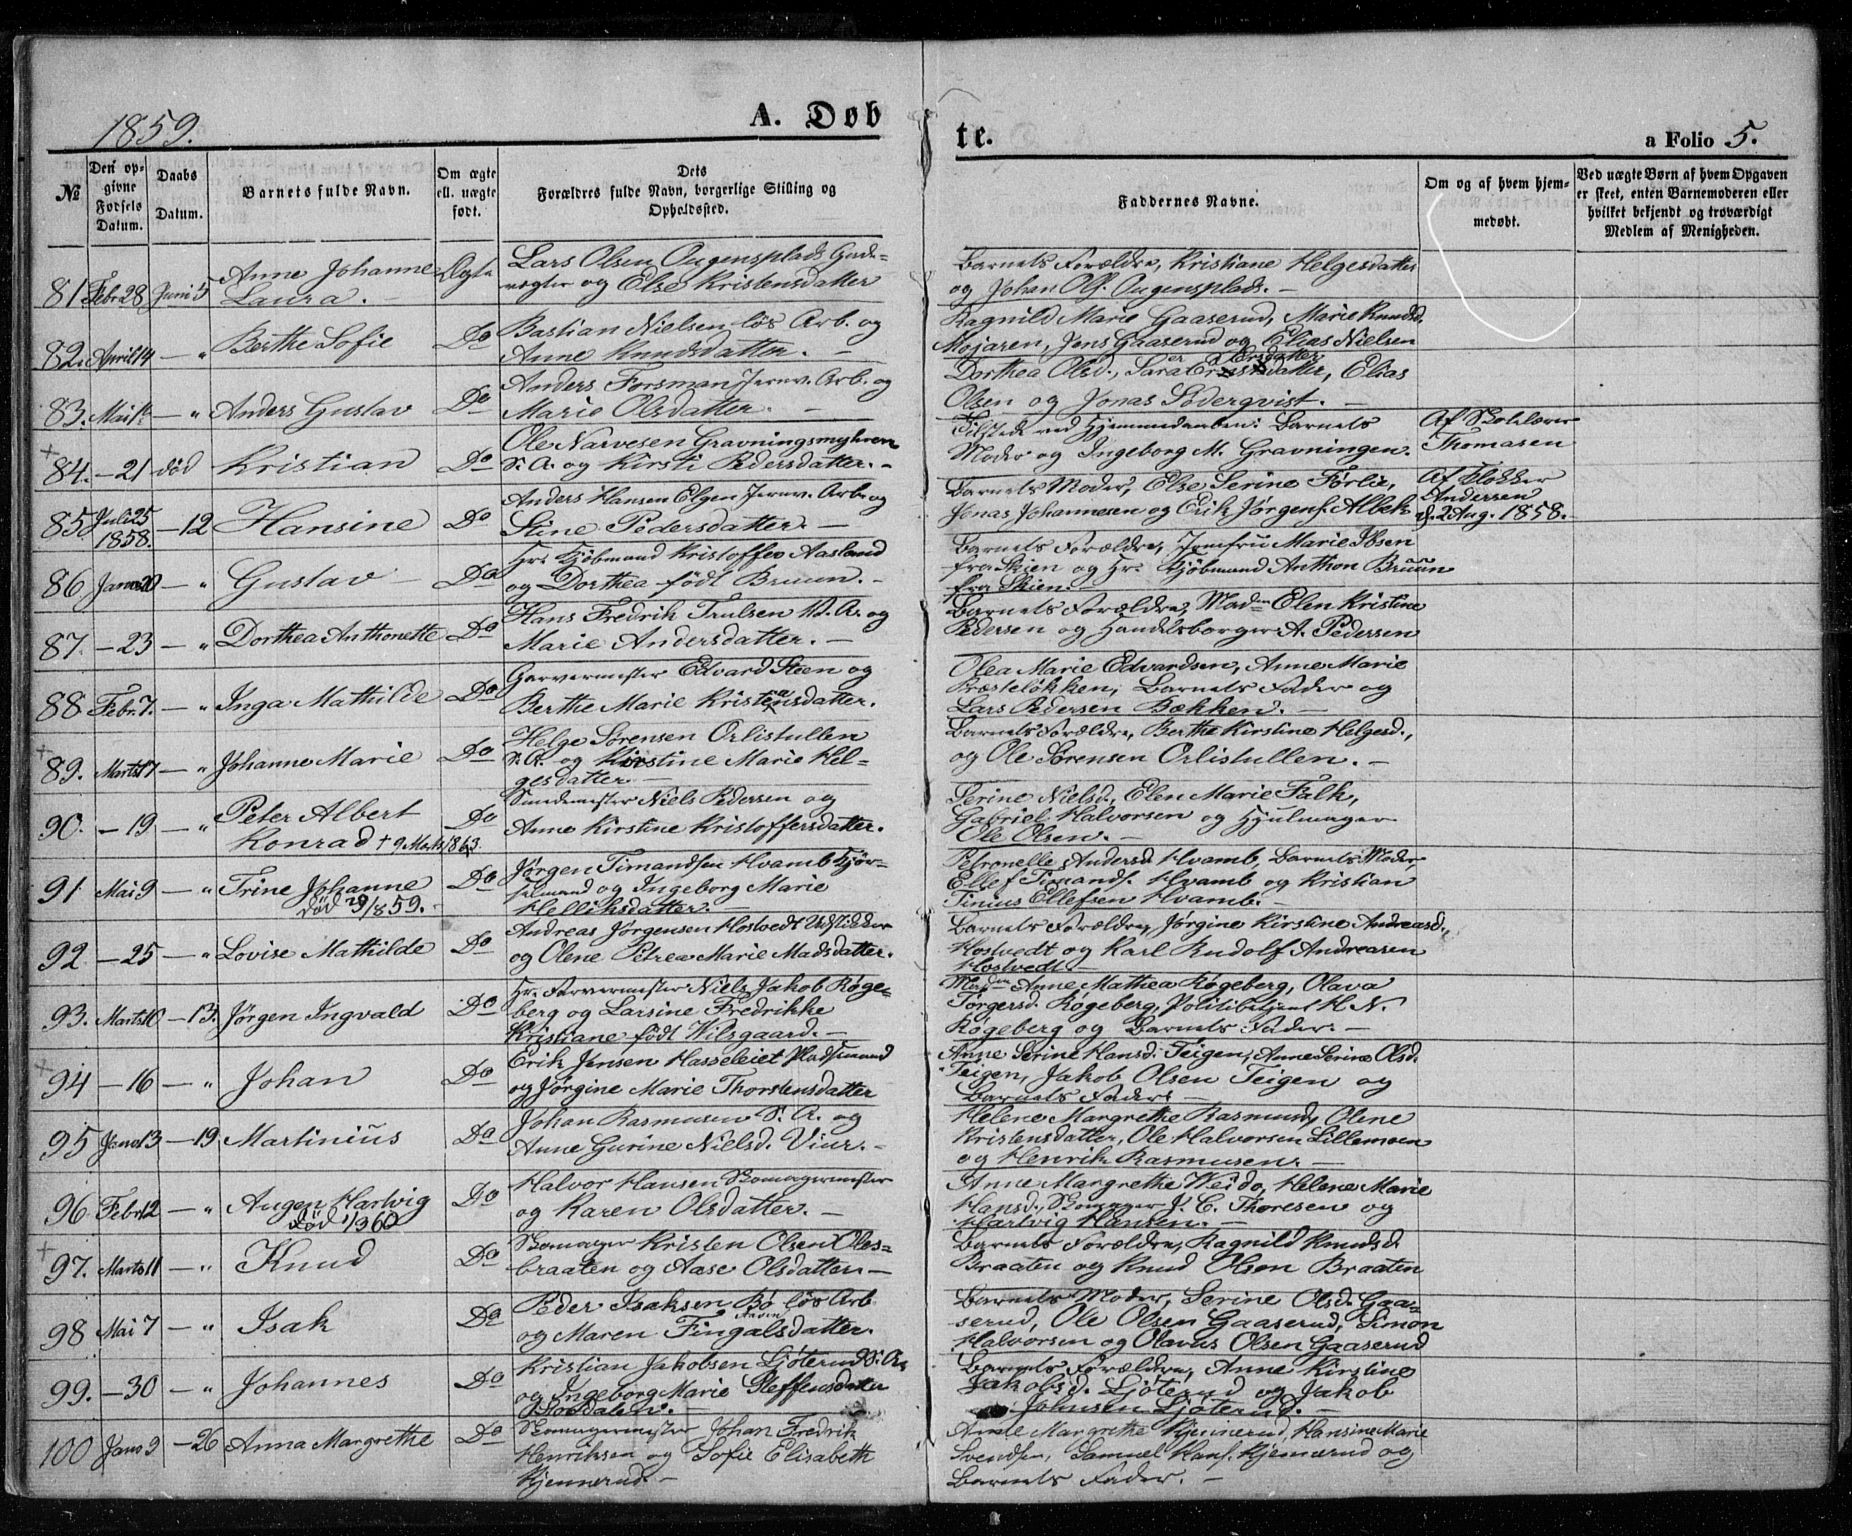 1859.
A. Døbte.
a Folio 5.
№
Den opgivne Fødsels Datum.
Daabs Datum.
Barnets fulde Navn.
Om ægte ell. uægte født.
Dets Forældres fulde Navn, borgerlige Stilling og Opholdssted.
Faddernes Navne.
Om og af hvem hjemmedøbt.
Ved uægte Børn af hvem Opgaven er skeet, enten Barnemoderen eller hvilket bekjendt og troværdigt Medlem af Menigheden.
81 Febr. 28 Juni 5 Anne Johanne Laura. Ægte
Lars Olsen Augensplads Gade-
vægter og Else Kristensdatter
Barnets Forældre, Kristiane Helgesdatter
og Johan Ols. Augensplads.
82. April 14 — " Berthe Sofie Do
Bastian Nielsen løs Arb. og
Anne Knudsdatter.
Ragnild Marie Gaaserud, Marie Knudsd.
Mojaren, Jens Gaaserud og Elias Nielsen
83. Mai — " Anders Gustav Do
Anders Forsman Jernv. Arb. og
Marie Olsdatter.
Dorthea Olsd., Sara Ersdatter, Elias
Olsen og Jonas Søderqvist.
84. — 21 død Kristian Do
Ole Narvesen Gravningsmyhren
S. A. og Kirsti Pedersdatter.
Tilstede ved Hjemmedaaben: Barnets
Moder og Ingeborg M. Gravningen.
Af Skolelærer
Thomasen
85 Juli 25 1858. — 12 Hansine Do
Anders Hansen Elgen Jernv. Arb. og
Stine Pedersdatter.
Barnets Moder, Else Serine Førlie,
Jonas Johannesen og Erik Jørgens. Albek
Af Klokker
Andersen
d. 2 Aug. 1858.
86 Januar 20 — " Gustav Do
Hr. Kjøbmand Kristoffer Aasland
og Dorthea født Bruun.
Barnets Forældre, Jomfru Marie Ibsen
fra Skien og Hr. Kjøbmand Anthon Bruun
fra Skien.
87. — 23 — " Dorthea Anthonette Do
Hans Fredrik Trulsen V. A. og
Marie Andersdatter.
Barnets Forældre, Mad. Elen Kristine
Pedersen og Handelsborger A. Pedersen
88 Febr. 7. — " Inga Mathilde Do
Garvermester Edvard Steen og
Berthe Marie Kristensdatter.
Olea Marie Edvardsen, Anne Marie
Præsteløkken, Barnets Fader og
Lars Pedersen Bækken.
89. Marts 17 — " Johanne Marie Do
Helge Sørensen Orlistullen
S. A. og Kirstine Marie Hel-
gesdatter
Barnets Forældre, Berthe Kirstine Helgesd.,
og Ole Sørensen Orlistullen.
90. — 19 — " Peter Albert
Konrad † 9 Marts 1863. Do
Smedemester Niels Pedersen og
Anne Kirstine Kristoffersdatter.
Serine Nielsd., Elen Marie Falk,
Gabriel Halvorsen og Hjulmager
Ole Olsen.
91 Mai 9 — " Trine Johanne Do
død 29/ 1859.
Jørgen Timandsen Hvamb Kjør-
selmand og Ingeborg Marie
Helliksdatter.
Petronelle Andersd. Hvamb, Barnets Moder,
Ellef Timands. Hvamb og Kristian
Tinius Ellefsen Hvamb.
92 — 25 — " Lovise Mathilde Do
Andreas Jørgensen Hostvedt Udstikker
og Olene Petrea Marie Madsdatter.
Barnets Forældre, Jørgine Kirstine Andreasd.
Hostvedt og Karl Rudolf Andreasen
Hostvedt.
93. Marts 10 — 13. Jørgen Ingvald Do
Hr. Farvermester Niels Jakob Røge-
berg og Larsine Fredrikke
Kristiane født Wilsgaard.
Mad. Anne Mathea Røgeberg, Olava
Torgersd. Røgeberg, Politibetjent H. N.
Røgeberg og Barnets Fader.
94 — 16 — " Johan Do
Erik Jensen Hasseleiet Pladsmand
og Jørgine Marie Thorstensdatter
Anne Serine Hansd. Teigen, Anne Serine Olsd.
Teigen, Jakob Olsen Teigen og
Barnets Fader
95 Jan. 13 — 19 Martinius Do
Johan Rasmusen S. A. og
Anne Gurine Nielsd. Viur.
Helene Margrethe Rasmusd., Olene
Kristensdatter, Ole Halvorsen Lillemoen
og Henrik Rasmusen.
96. Febr. 12 — " Augen Hartvig Do
død 1/3 60
Halvor Hansen Skomagermester
og Karen Olsdatter.
Anne Margrethe Weido, Helene Marie
Hansd., Skomager J. C. Thoresen og
Hartvig Hansen.
97. Marts 11 — " Knud Do
Skomager Kristen Olsen Oles-
braaten og Aase Olsdatter.
Barnets Forældre, Ragnild Knudsd.
Braaten og Knud Olsen Braaten
98 Mai 7 — " Isak Do
Peder Isaksen Bø løs Arb.
og Maren Karine Fingalsdatter.
Barnets Moder, Serine Olsd. Gaa-
serud, Ole Olsen Gaaserud, Simon
Halvorsen og Olavus Olsen Gaaserud
99. — 30 — " Johannes Do
Kristian Jakobsen Ljøterud S. A.
og Ingeborg Marie Steffensdatter
Stordalen.
Barnets Forældre, Anne Kirstine
Jakobsd. Ljøterud og Jakob
Johnsen Ljøterud.
100 Jan. 9 — 26 Anna Margrethe Do
Skomagermester Johan Fredrik
Henriksen og Sofie Elisabeth
Kjennerud.
Margrethe Kjennerud, Hansine Marie
Svendsen, Samuel Hans. Kjennerud og
Barnets Fader.